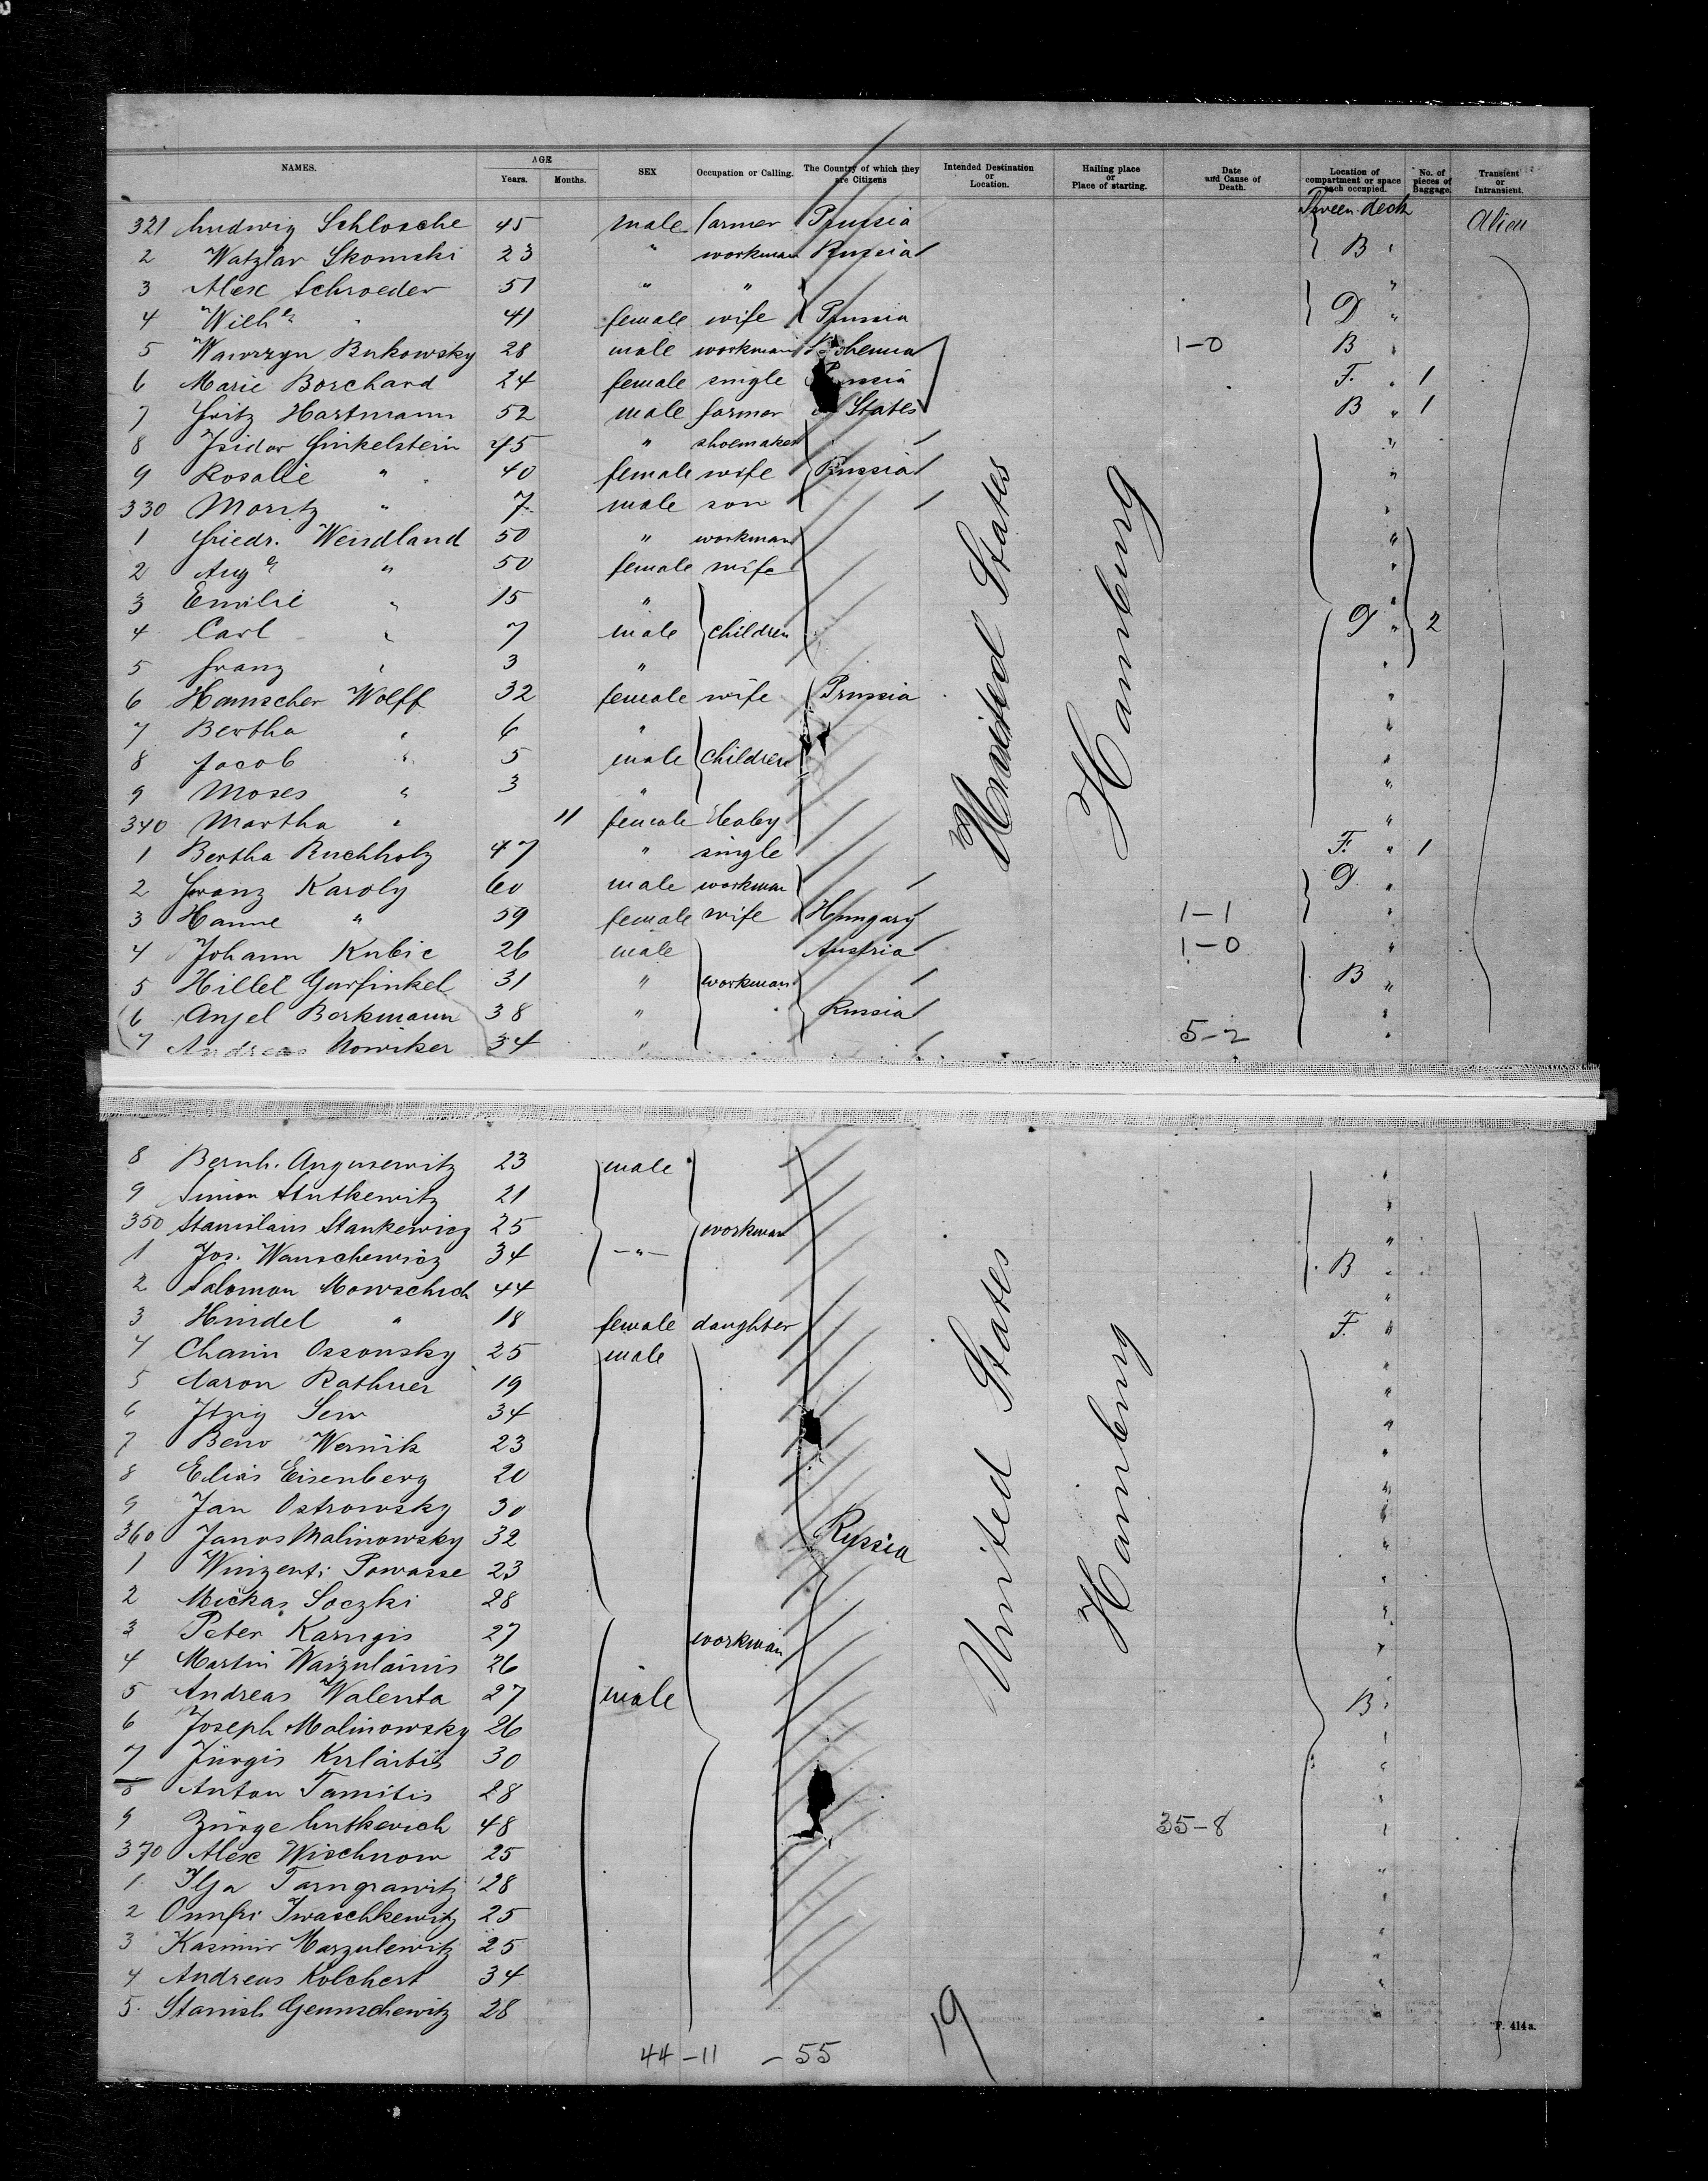 NAMES. AGE Years. Months. SEX Occupation or Calling. The Country of which they are Citizens Intended Destination or Location. Hailing place or Place of starting. Date and Cause of Death. Location of compartment or space each occupied. No. of pieces of Baggage. Transient or Intransient.
321 Ludwig Schlosche 45 male farmer Prussia Tween deck Alien
2 Watzlav Skomski 23 " workman Russia B "
3 Alex Schroeder 51 " " "
4 Wilhe " 41 female wife Prussia D "
5 Wawrzyn Bukowsky 28 male workman 1-0 B "
6 Marie Borchard 24 female single Prussia F. " 1
7 Fritz Hartmann 52 male farmer States B " 1
8 Isidor Finkelstein 45 " shoemaker "
9 Rosalie " 40 female wife Russia "
330 Moritz " 7 male son "
1 Friedr. Wendland 50 " workman "
2 Auge " 50 female wife "
3 Emilie " 15 " "
4 Carl " 7 male children D " 2
5 Franz " 3 " "
6 Hannscher Wolff 32 female wife Prussia "
7 Bertha " 6 " "
8 Jacob " 5 male children "
9 Moses " 3 " "
340 Martha " 11 female baby "
1 Bertha Buchholz 47 " single F. " 1
2 Franz Karoly 60 male workman D "
3 Hanne " 59 female wife Hungary 1-1 "
4 Johann Kubic 26 male Austria 1-0 "
5 Hillel Garfinkel 31 " workman B "
6 Anjel Berkmann 38 " Russia "
7 Andreas Nowiker 34 " 5-2 "
United States Hamburg
8 Bernh. Angusewitz 23 male "
9 Simon Stutkewitz 21 "
350 Stanislaus Stankewicz 25 workman "
1 Jos. Wanschewicz 34 -"- B "
2 Salomon Mowschich 44 "
3 Hindel " 18 female daughter F. "
4 Chaim Ossonsky 25 male "
5 Aaron Rathner 19 "
6 Itzig Sew 34 "
7 Beno Wernik 23 "
8 Elias Eisenberg 20 "
9 Jan Ostrowsky 30 "
360 Janos Malinowsky 32 Russia "
1 Winzenti Powasse 23 "
2 Mickas Soczki 28 "
3 Peter Karugis 27 workman "
4 Martin Waizulainis 26 "
5 Andreas Walenta 27 male B "
6 Joseph Malinowsky 26 "
7 Jürgis Kirlaitis 30 "
8 Anton Tamitis 28 "
9 Zürge Lutkevich 48 35-8 "
370 Alex Wischnow 25 "
1 Ilja Tarngrawitz 28 "
2 Onufri Iwaschkewitz 25 "
3 Kasimir Marzulewitz 25 "
4 Andreas Kolchert 34 "
5 Stanisl. Gennschewitz 28 "
United States Hamburg
F. 414a.
44 - 11 - 55 19